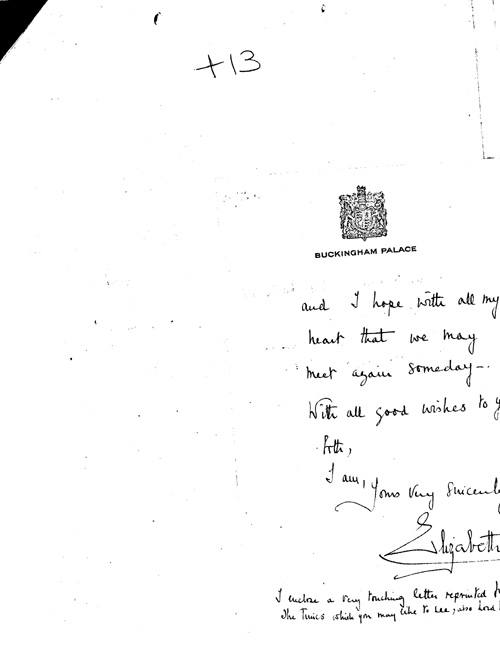 +13
BUCKINGHAM PALACE
and I hope with all my
heart that we may
meet again someday –.
With all good wishes to y
both,
I am,
yours very sincerely
Elizabeth
I enclose a very touching letter reprinted
The Times which you may like to see, also Lord